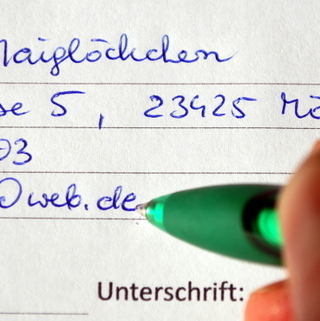 Maiglöckchen
se 5, 23425 Mö
03
@web.de
Unterschrift: